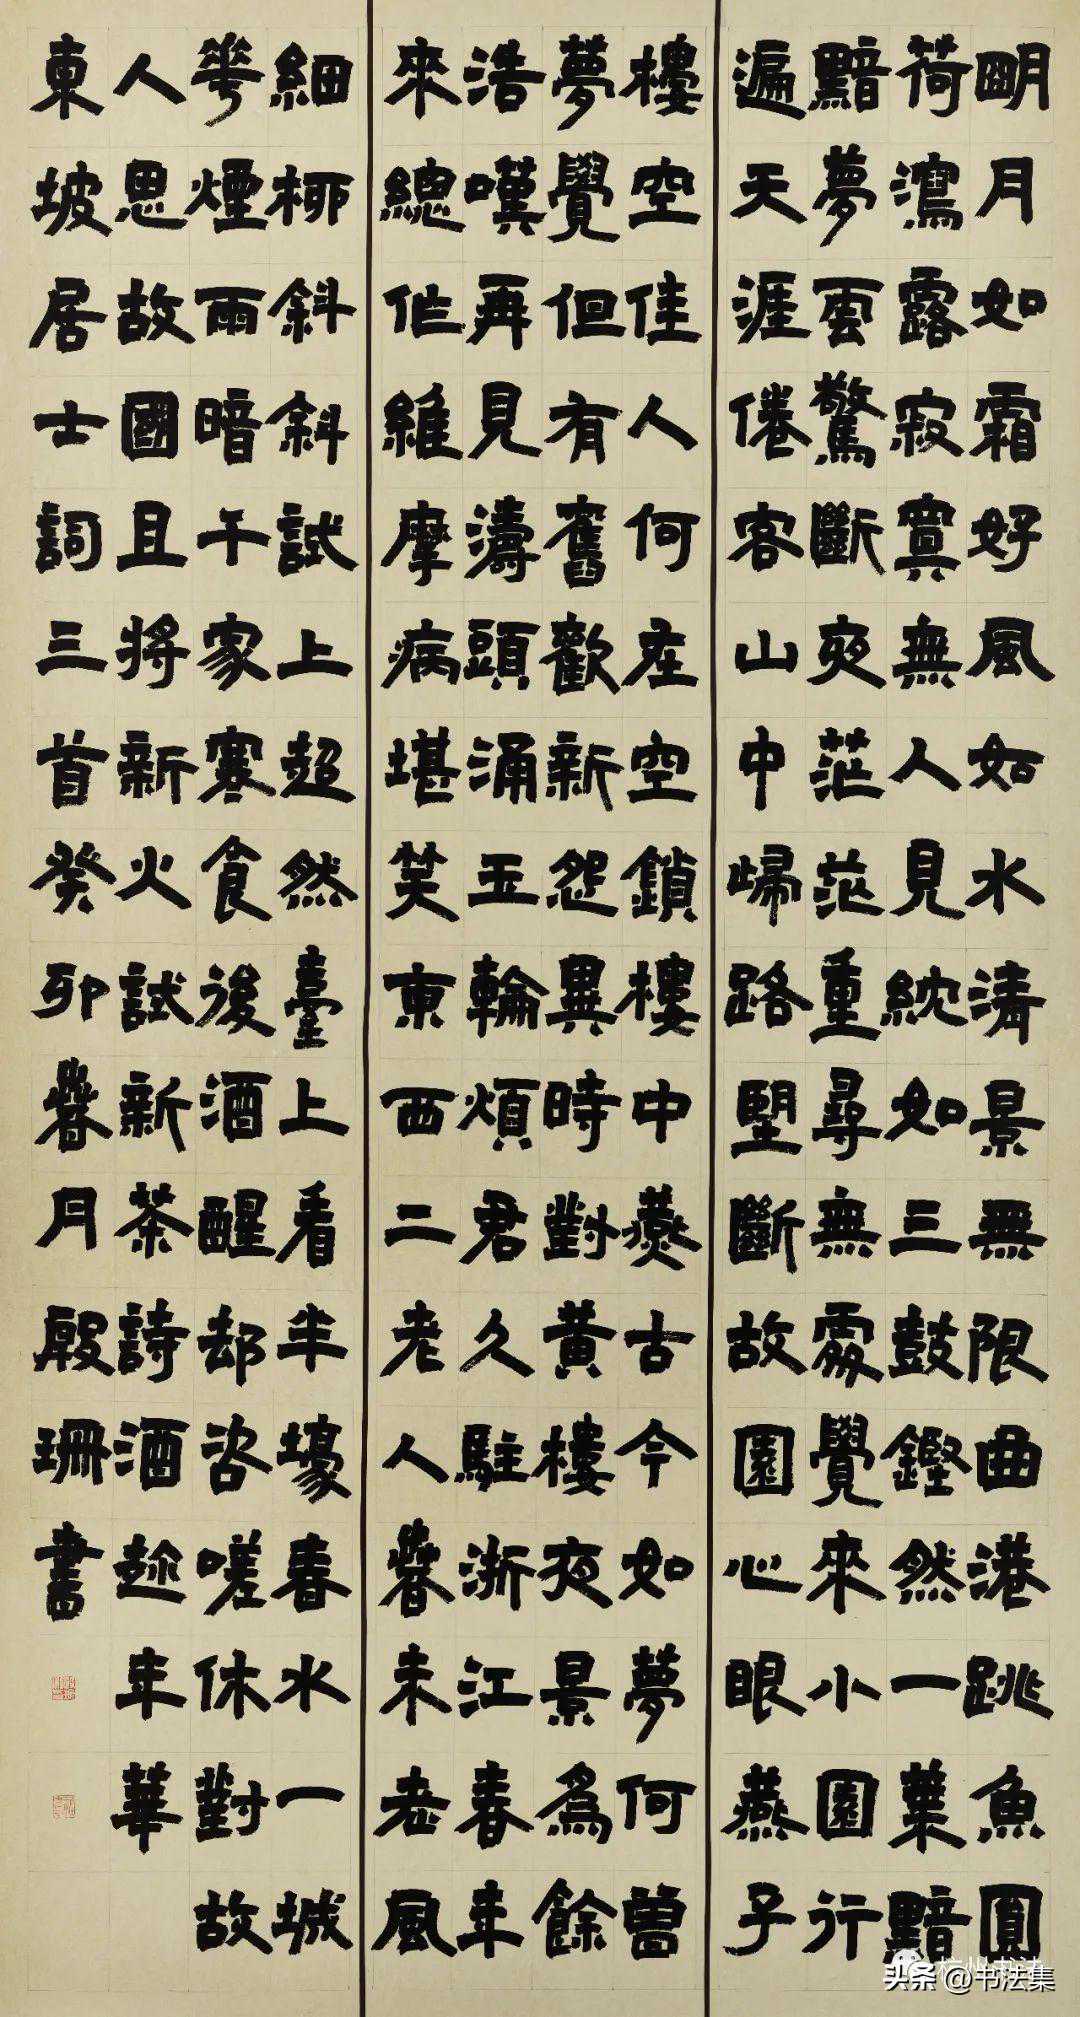 明月如霜好風如水清景無限曲港跳魚圓
荷瀉露寂寞無人見紞如三鼓鏗然一葉黯
黯夢雲驚斷夜茫茫重尋無處覺來小園行
遍天涯倦客山中歸路望斷故園心眼燕子
樓空佳人何在空鎖樓中燕古今如夢何曾
夢覺但有舊歡新怨異時對黃樓夜景為餘
浩嘆再見濤頭涌玉輪煩君久駐浙江春年
來總作維摩病堪笑東西二老人春未老風
細柳斜斜試上超然臺上看半壕春水一城
花煙雨暗千家寒食後酒醒卻咨嗟休對故
人思故國且將新火試新茶詩酒趁年華
東坡居士詞三首癸卯春月殷珊書
头条 @书法集